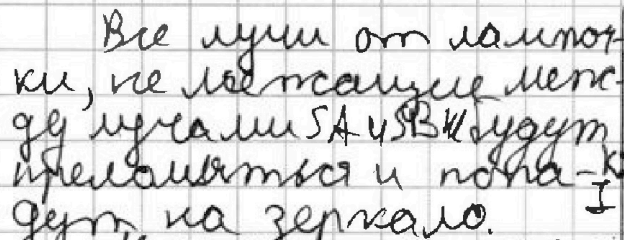 Все лучи от лампоч-
ки, не лежащие меж-
ду лучами SA и SB будут
преломляться и попа-
дут на зеркало.